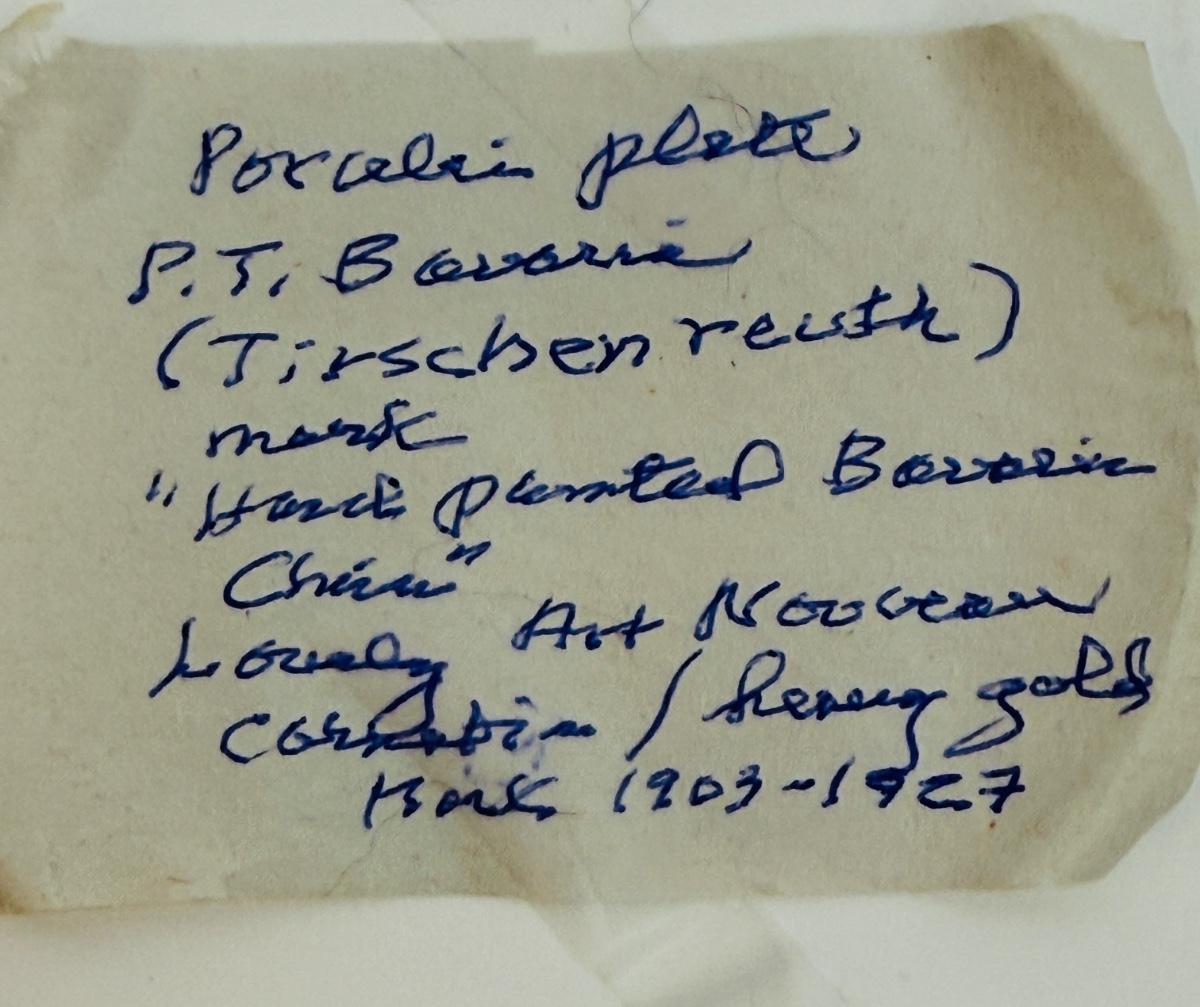 Porcelain plate
P.T. Bavaria
(Tirschenreuth)
mark
"Hand painted Bavaria
China"
Lovely Art Nouveau
carnation / heavy gold
Mark 1903-1927